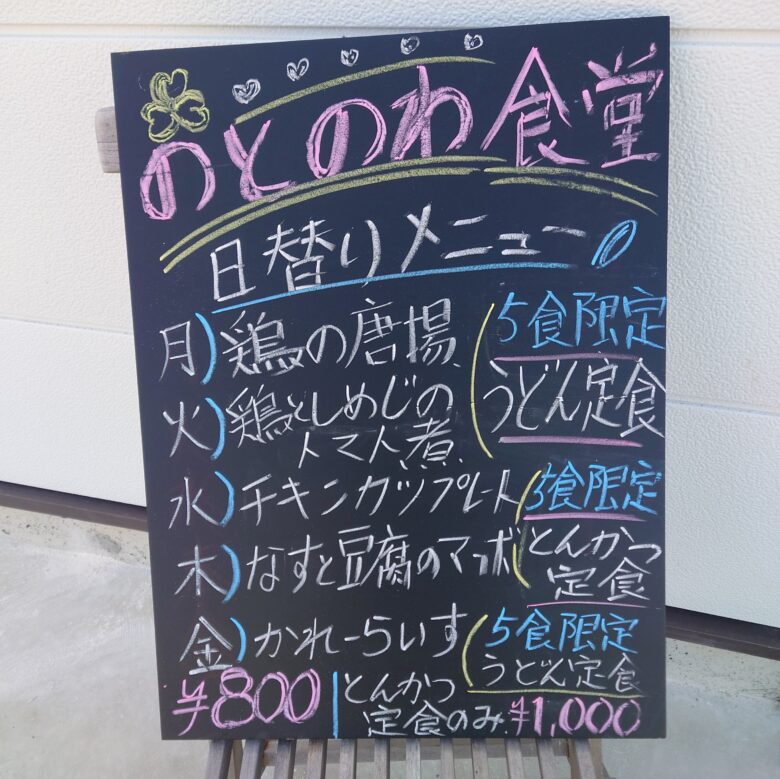 のとのわ食堂
日替りメニュー
月)鶏の唐揚
5食限定
うどん定食
火)鶏としめじの
トマト煮
水)チキンカツプレート
5食限定
とんかつ
定食
木)なすと豆腐のマーボ
金)かれーらいす
5食限定
うどん定食
¥800
とんかつ
定食のみ ¥1,000